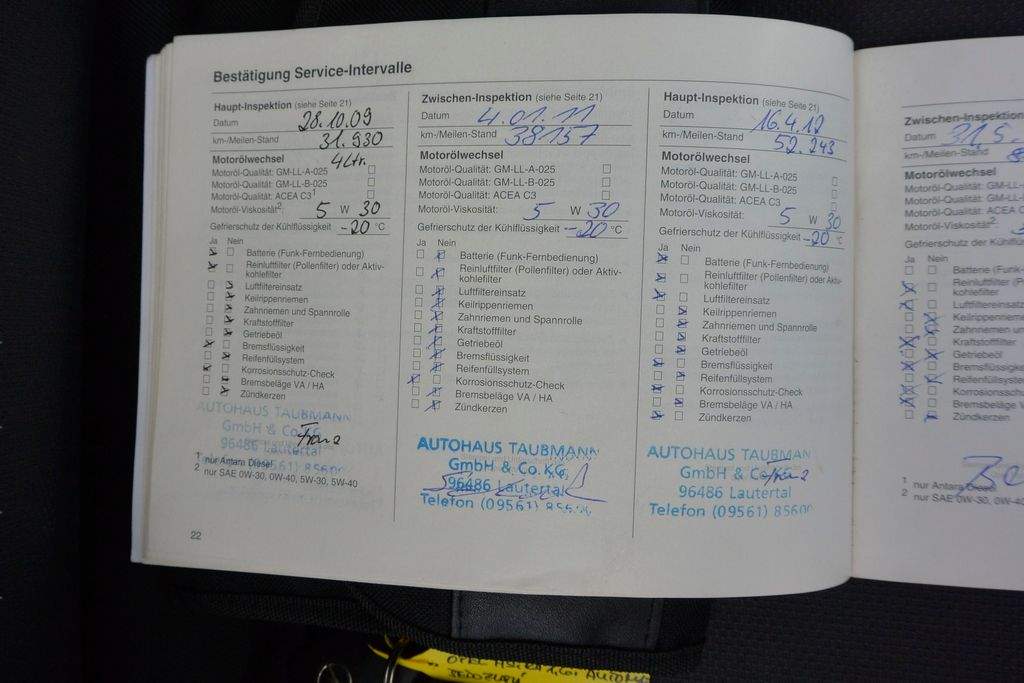 Bestätigung Service-Intervalle
Haupt-Inspektion (siehe Seite 21)
Datum 28.10.09
km-/Meilen-Stand 31.930
Motorölwechsel 4 Ltr.
Motoröl-Qualität: GM-LL-A-025
Motoröl-Qualität: GM-LL-B-025
Motoröl-Qualität: ACEA C3¹
Motoröl-Viskosität²: 5 W 30
Gefrierschutz der Kühlflüssigkeit -20 °C
Ja Nein
Batterie (Funk-Fernbedienung)
Reinluftfilter (Pollenfilter) oder Aktiv-
kohlefilter
Luftfiltereinsatz
Keilrippenriemen
Zahnriemen und Spannrolle
Kraftstofffilter
Getriebeöl
Bremsflüssigkeit
Reifenfüllsystem
Korrosionsschutz-Check
Bremsbeläge VA / HA
Zündkerzen
AUTOHAUS TAUBMANN
GmbH & Co.KG
96486 Lautertal
1 nur Antara Diesel
2 nur SAE 0W-30, 0W-40, 5W-30, 5W-40
22
Zwischen-Inspektion (siehe Seite 21)
Datum 4.01.11
km-/Meilen-Stand 38157
Motorölwechsel
Motoröl-Qualität: GM-LL-A-025
Motoröl-Qualität: GM-LL-B-025
Motoröl-Qualität: ACEA C3
Motoröl-Viskosität: 5 W 30
Gefrierschutz der Kühlflüssigkeit -20 °C
Ja Nein
Batterie (Funk-Fernbedienung)
Reinluftfilter (Pollenfilter) oder Aktiv-
kohlefilter
Luftfiltereinsatz
Keilrippenriemen
Zahnriemen und Spannrolle
Kraftstofffilter
Getriebeöl
Bremsflüssigkeit
Reifenfüllsystem
Korrosionsschutz-Check
Bremsbeläge VA / HA
Zündkerzen
AUTOHAUS TAUBMANN
GmbH & Co.KG
96486 Lautertal
Telefon (09561) 85600
Haupt-Inspektion (siehe Seite 21)
Datum 16.4.12
km-/Meilen-Stand 52.243
Motorölwechsel
Motoröl-Qualität: GM-LL-A-025
Motoröl-Qualität: GM-LL-B-025
Motoröl-Qualität: ACEA C3
Motoröl-Viskosität: 5 W 30
Gefrierschutz der Kühlflüssigkeit -20 °C
Ja Nein
Batterie (Funk-Fernbedienung)
Reinluftfilter (Pollenfilter) oder Aktiv-
kohlefilter
Luftfiltereinsatz
Keilrippenriemen
Zahnriemen und Spannrolle
Kraftstofffilter
Getriebeöl
Bremsflüssigkeit
Reifenfüllsystem
Korrosionsschutz-Check
Bremsbeläge VA / HA
Zündkerzen
AUTOHAUS TAUBMAN
GmbH & Co.KG
96486 Lautertal
Telefon (09561) 85600
Zwischen-Inspektion
Datum 31.5.
km-/Meilen-Stand
Motorölwechsel
Motoröl-Qualität: GM-LL-
Motoröl-Qualität: GM-LL-
Motoröl-Qualität: ACEA C
Motoröl-Viskosität²:
Gefrierschutz der Kühlflüssi
Ja Nein
Batterie (Funk-Fer
Reinluftfilter (Poll
kohlefilter
Luftfiltereinsatz
Keilrippenriemen
Zahnriemen un
Kraftstofffilter
Getriebeöl
Bremsflüssigke
Reifenfüllsyste
Korrosionsschu
Bremsbeläge V
Zündkerzen
1 nur Antara Diesel
2 nur SAE 0W-30, 0W-40
OPEL